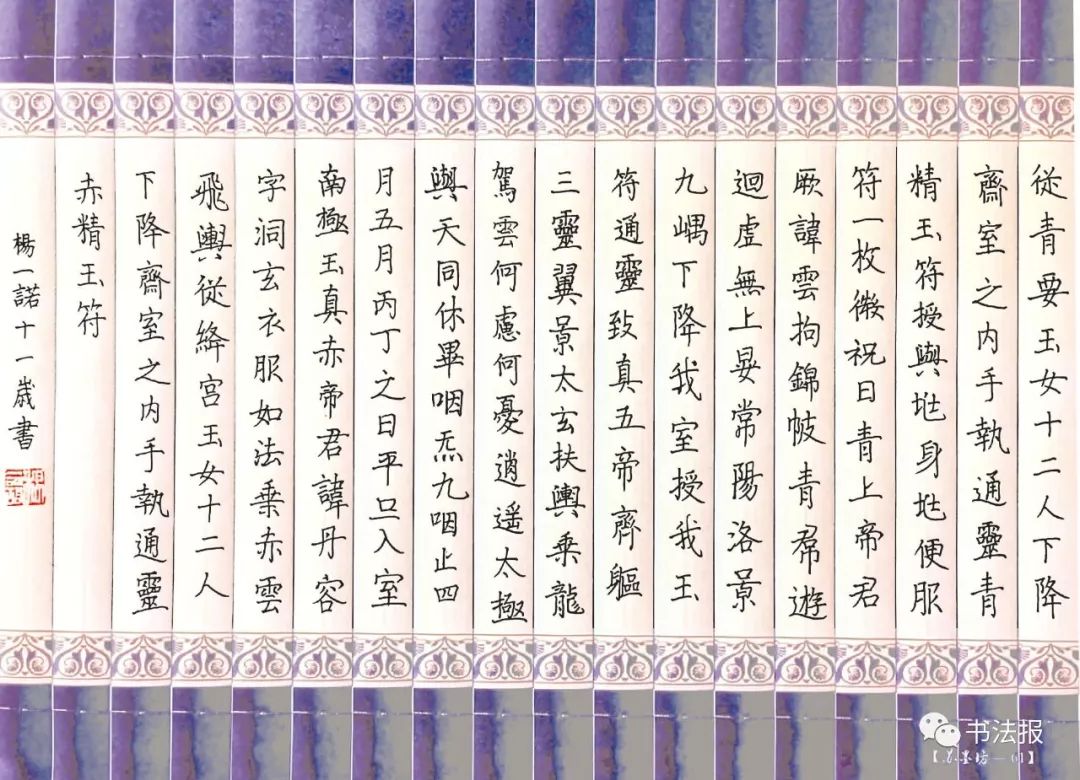 従青要玉女十二人下降
齋室之内手執通靈青
精玉符授與尘身尘便服
符一枚微祝日青上帝君
厥諱雲拘錦帔青帬遊
迴虛無上晏常陽洛景
九嵎下降我室授我玉
符通靈致真五帝齊軀
三靈翼景太玄扶輿乗龍
駕雲何慮何憂逍遥太極
與天同休畢咽炁九咽止四
月五月丙丁之日平旦入室
南極玉真赤帝君諱丹容
字洞玄衣服如法乗赤雲
飛輿従絳宫玉女十二人
下降齋室之内手執通靈
赤精玉符
楊一諾十一歳書
书法报